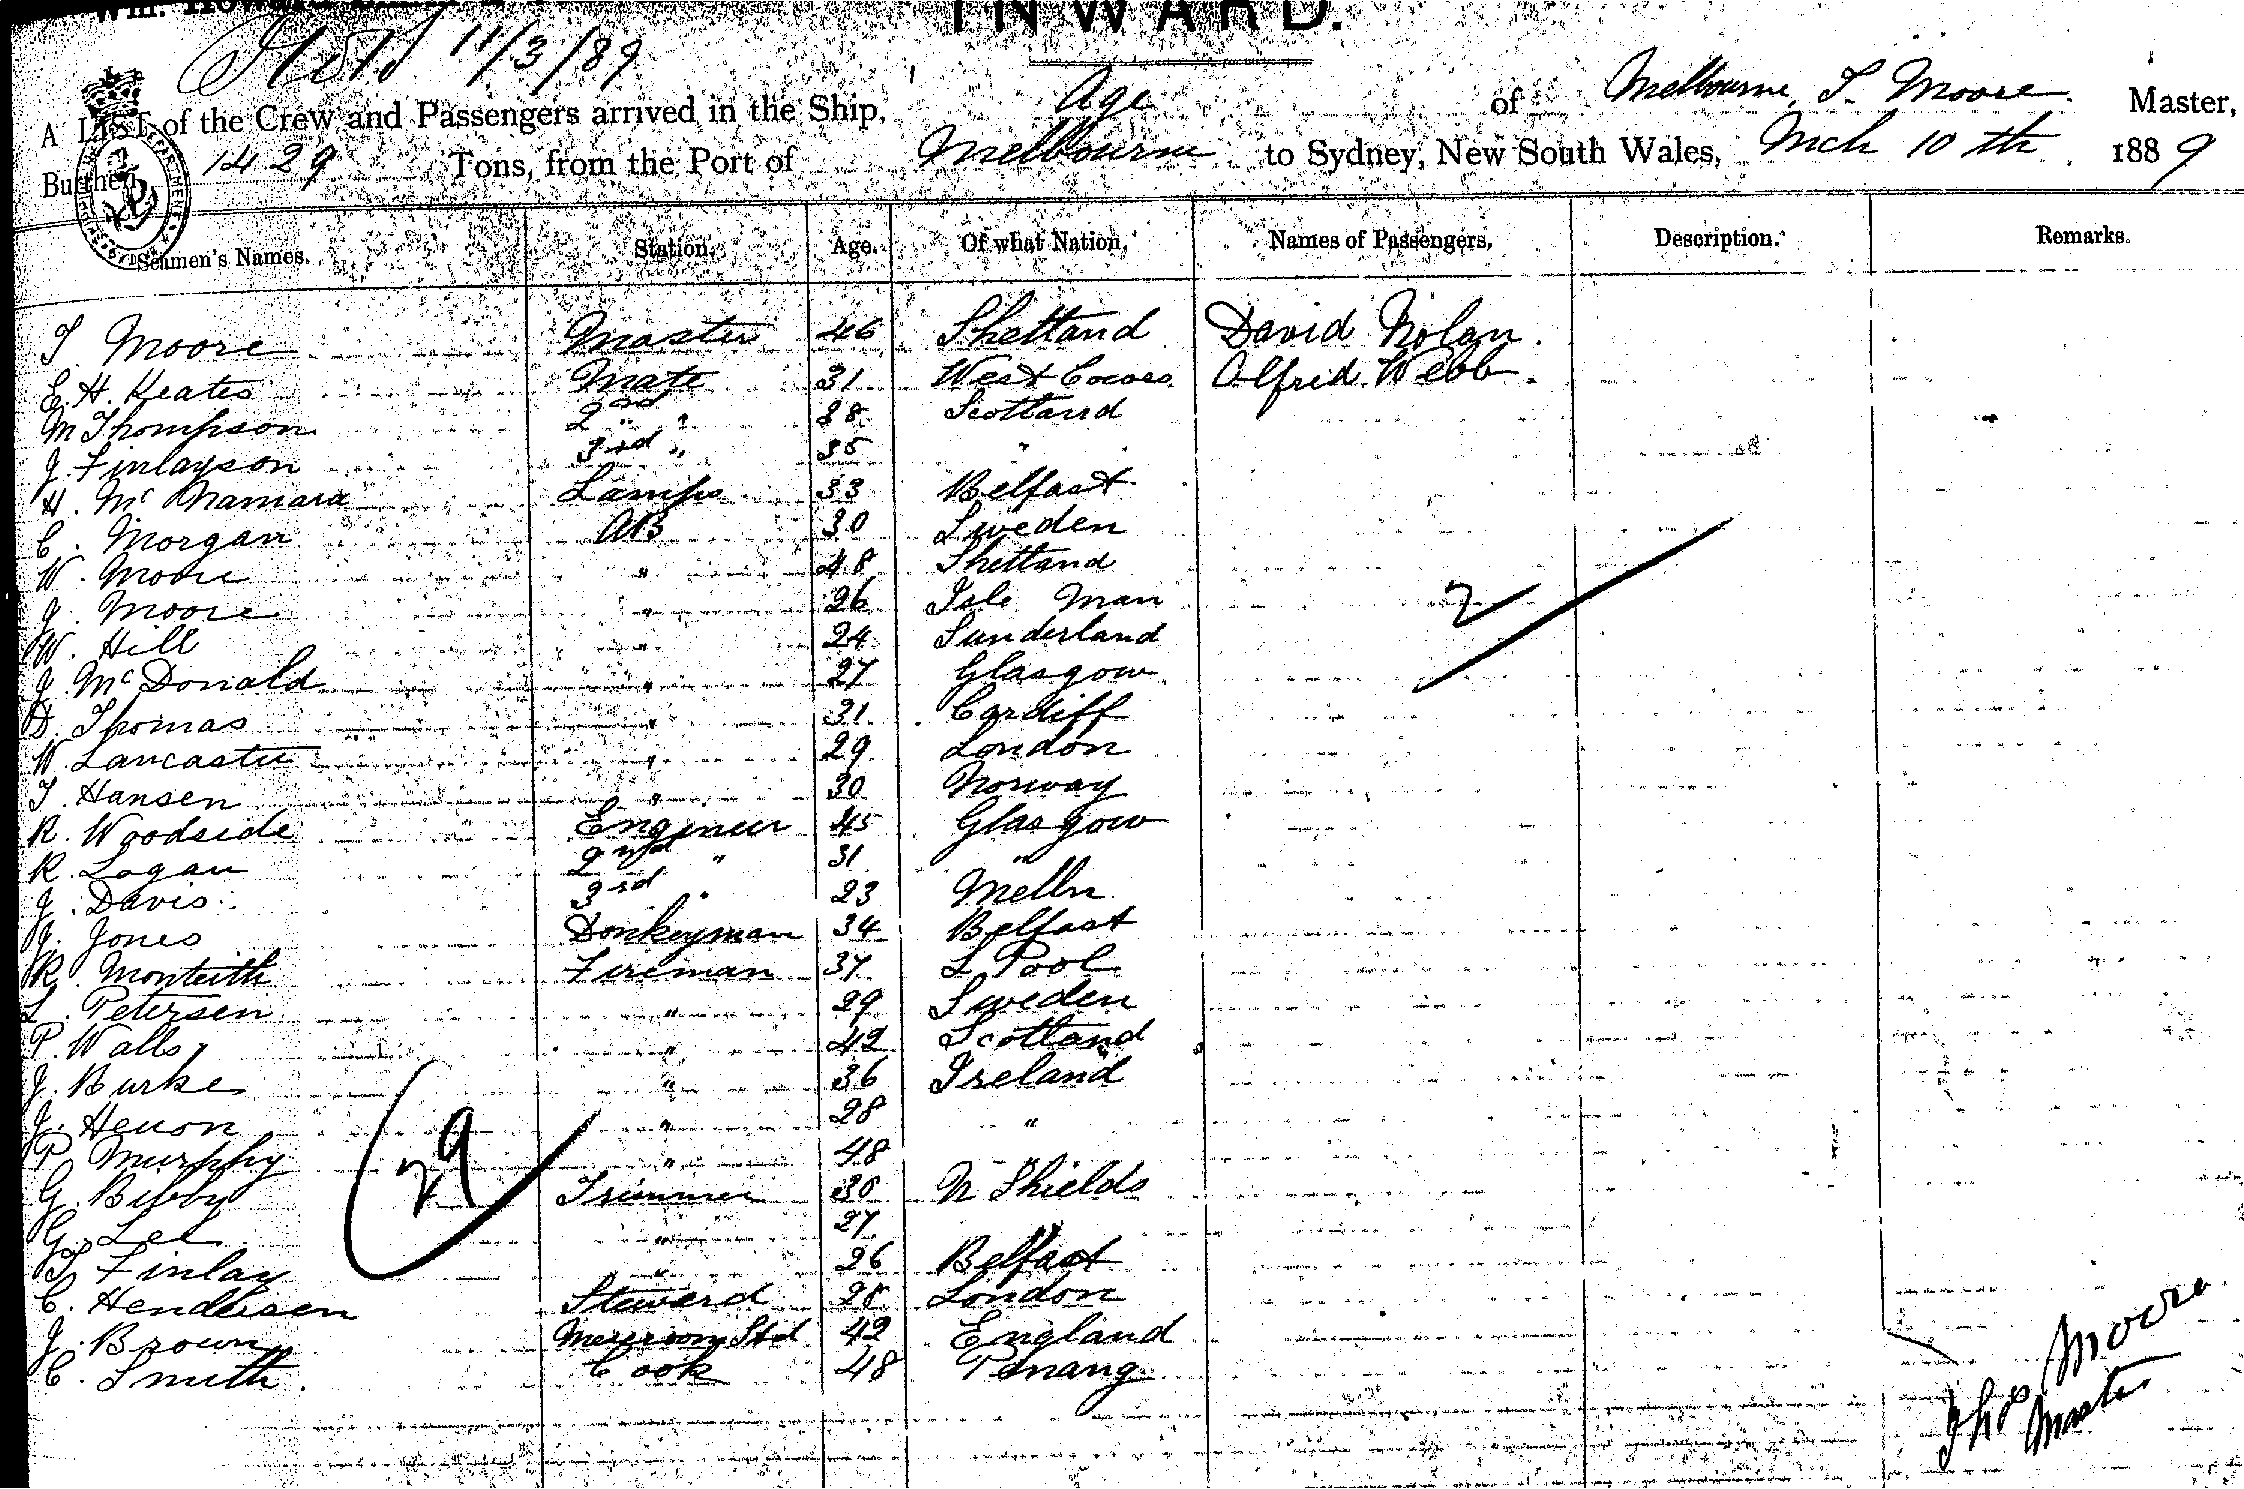 INWARD.
11/3/89
A LIST of the Crew and Passengers arrived in the Ship, Age of Melbourne, T. Moore. Master,
Burthen 1429 Tons, from the Port of Melbourne to Sydney, New South Wales, Mch 10th 1889
Seamen's Names. Station. Age. Of what Nation. Names of Passengers. Description. Remarks.
T Moore Master 46 Shetland David Nolan.
E. H. Keates Mate 31 West Cowes Alfred Webb.
M Thompson 2nd " 28 Scotland
J. Finlayson 3rd " 35 "
H. McNamara Lamps 33 Belfast
C. Morgan AB 30 Sweden
W. Moore " 48 Shetland
J. Moore " 26 Isle Man
W. Hill " 24 Sunderland
J. McDonald " 27 Glasgow
D. Thomas " 31 Cardiff
W. Lancaster " 29 London
T. Hansen " 30 Norway
R. Woodside Engineer 45 Glasgow
R. Logan 2nd " 31 "
J. Davis 3rd " 23 Melbn
J. Jones Donkeyman 34 Belfast
R. Monteith Fireman 37 L Pool
L. Petersen " 29 Sweden
P. Walls " 42 Scotland
J. Burke " 36 Ireland
J. Henon " 28 "
P. Murphy " 48 "
G. Bibby Trimmer 30 N Shields
G. Lee " 27
T Finlay " 26 Belfast
C. Hendersen Steward 28 London
J. Brown Messroom Std 42 England
C. Smith Cook 48 Penang
2
29
Thos Moore
Master